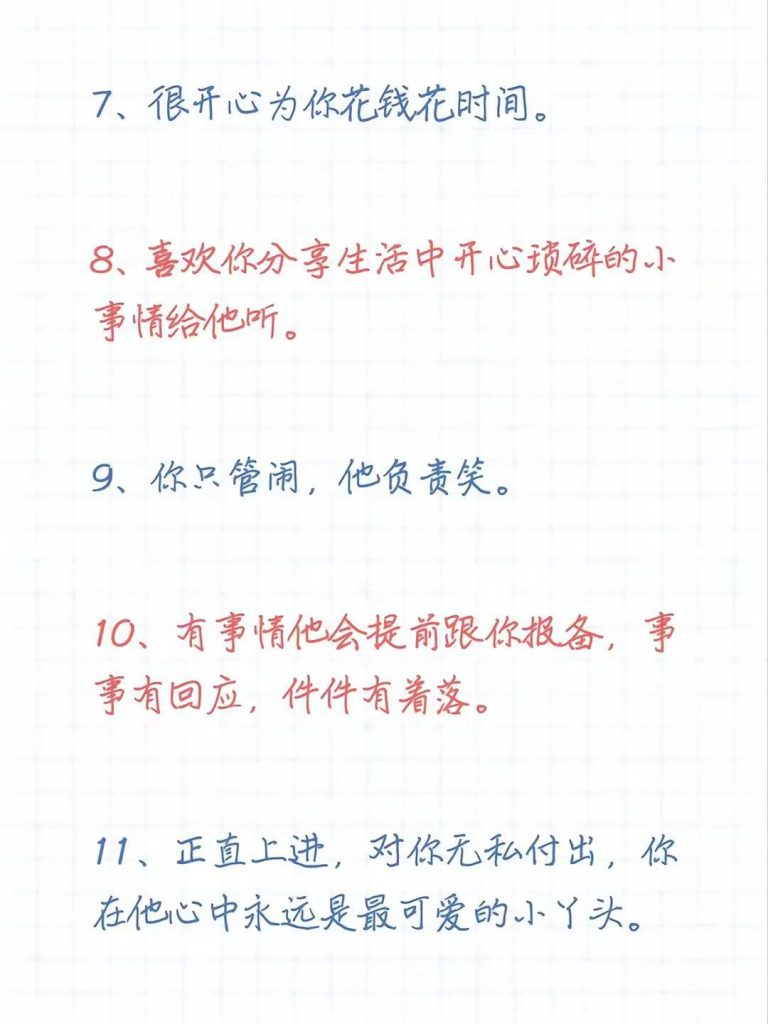 7、很开心为你花钱花时间。
8、喜欢你分享生活中开心琐碎的小
事情给他听。
9、你只管闹，他负责笑。
10、有事情他会提前跟你报备，事
事有回应，件件有着落。
11、正直上进，对你无私付出，你
在他心中永远是最可爱的小丫头。